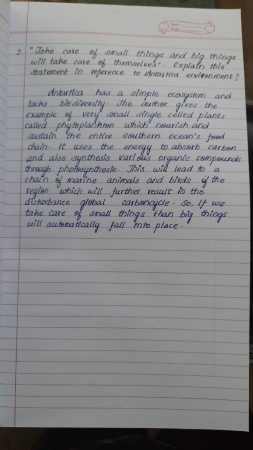 2. "Take care of small things and big things
will take care of themselves". Explain this
statement in reference to Antartica environment?
Antartica has a simple ecosystem and
lacks biodiversity. The author gives the
example of very small single celled plants
called phytoplankton which nourish and
sustain the entire southern ocean's food
chain. It uses the energy to absorb carbon
and also synthesis various organic compounds
through photosynthesis. This will lead to a
chain of marine animals and birds of the
region which will further result in the
disturbance global carboncycle. So, If we
take care of small things than big things
will automatically fall into place.